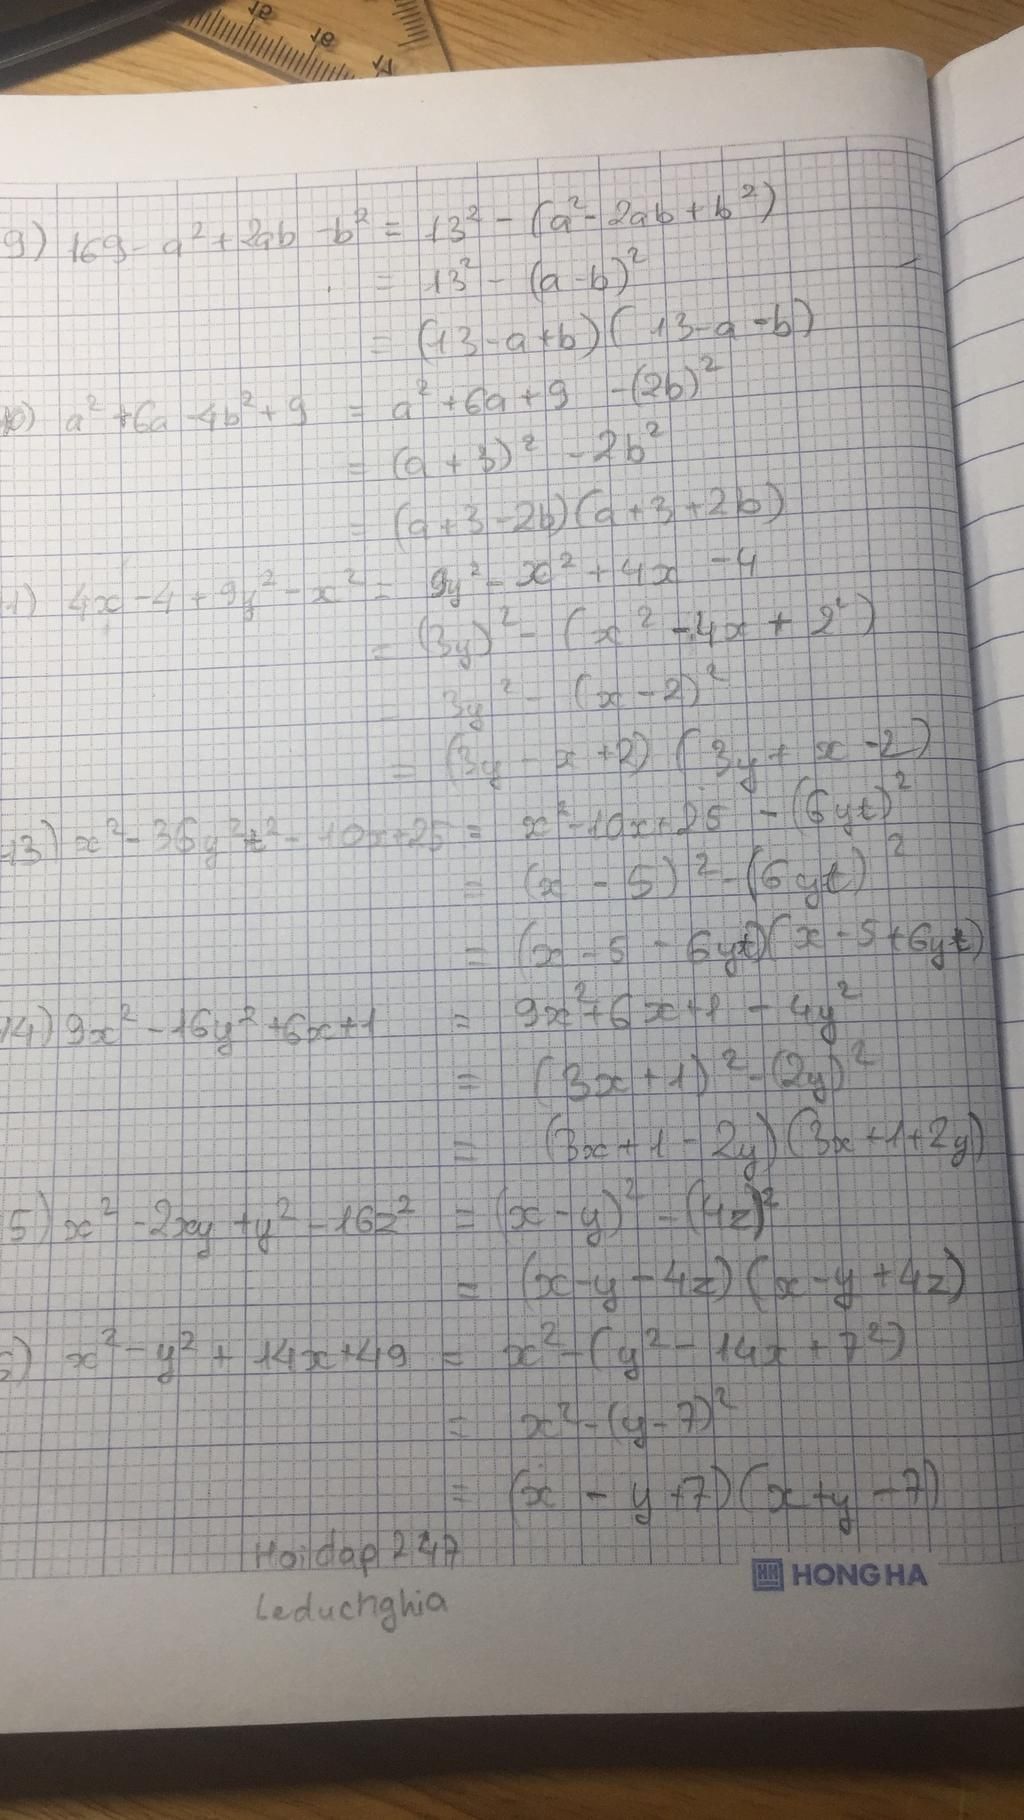 9) 169 - a² + 2ab - b² = 13² - (a² - 2ab + b²)
= 13² - (a - b)²
= (13 - a + b)(13 - a - b)
10) a² + 6a - 4b² + 9 = a² + 6a + 9 - (2b)²
= (a + 3)² - 2b²
= (a + 3 - 2b)(a + 3 + 2b)
11) 4x - 4 + 9y² - x² = 9y² - x² + 4x - 4
= (3y)² - (x² - 4x + 2²)
= 3y² - (x - 2)²
= (3y - x + 2)(3y + x - 2)
13) x² - 36y²t² - 10x + 25 = x² - 10x + 25 - (6yt)²
= (x - 5)² - (6yt)²
= (x - 5 - 6yt)(x - 5 + 6yt)
14) 9x² - 16y² + 6x + 1 = 9x² + 6x + 1 - 4y²
= (3x + 1)² - (2y)²
= (3x + 1 - 2y)(3x + 1 + 2y)
5) x² - 2xy + y² - 16z² = (x - y)² - (4z)²
= (x - y - 4z)(x - y + 4z)
) x² - y² + 14x + 49 = x² - (y² - 14x + 7²)
= x² - (y - 7)²
= (x - y + 7)(x + y - 7)
Hoidap 247
Leducnghia
HH HONG HA